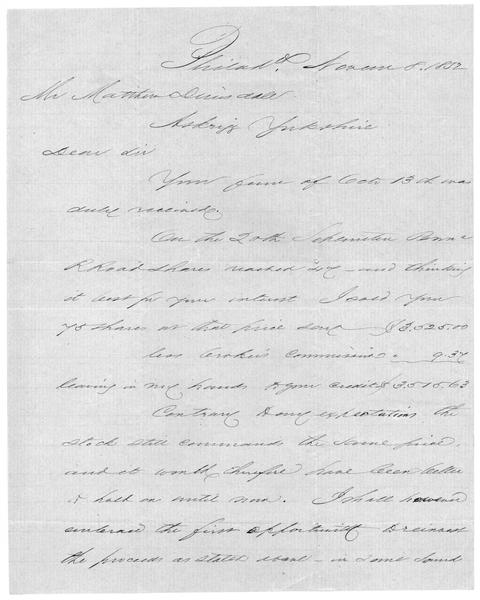 Philada. Novem 8. 1852
Mr Matthew Dinsdale
Askrigg Yorkshire
Dear Sir
Your favor of Octo 13th was
duly received.
On the 20th September Penna
R Road shares reached 47 — and thinking
it best for your interest I sold your
75 shares at that price say — $3,525.00
less Broker's commission — 9.37
leaving in my hands to your credit $3515.63
Contrary to my expectations the
stock still commands the same price
and it would therefore have been better
to hold on until now. I shall however
embrace the first opportunity to reinvest
the proceeds as stated above — in some sound